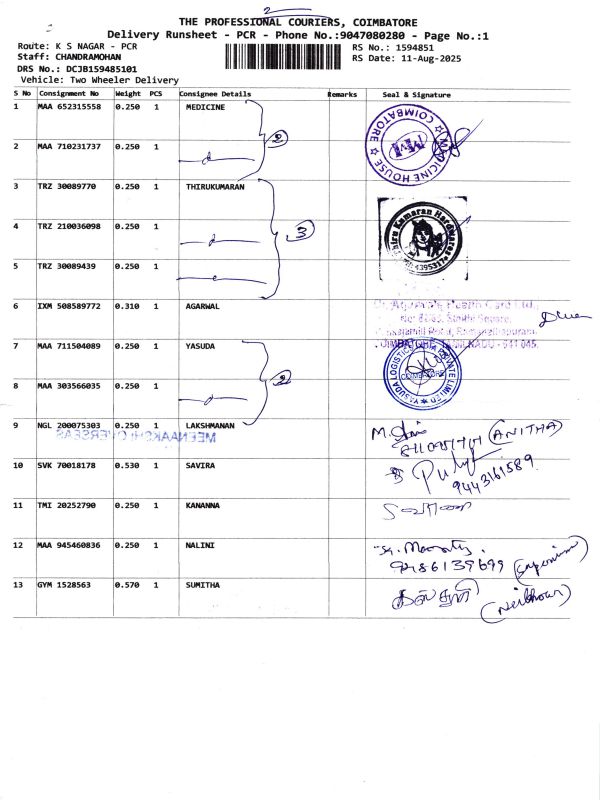 2
THE PROFESSIONAL COURIERS, COIMBATORE
Delivery Runsheet - PCR - Phone No.:9047080280 - Page No.:1
Route: K S NAGAR - PCR
RS No.: 1594851
Staff: CHANDRAMOHAN
RS Date: 11-Aug-2025
DRS No.: DCJB159485101
Vehicle: Two Wheeler Delivery
S No Consignment No Weight PCS Consignee Details Remarks Seal & Signature
1 MAA 652315558 0.250 1 MEDICINE
2 MAA 710231737 0.250 1
2
MEDICINE HOUSE ☆ COIMBATORE ☆
3 TRZ 30089770 0.250 1 THIRUKUMARAN
4 TRZ 210036098 0.250 1
5 TRZ 30089439 0.250 1
3
Thiru Kumaran Hardwares
6 IXM 508589772 0.310 1 AGARWAL
7 MAA 711504089 0.250 1 YASUDA
8 MAA 303566035 0.250 1
2
YASUDA LOGISTICS PRIVATE LIMITED
COIMBATORE
9 NGL 200075303 0.250 1 LAKSHMANAN
MEENAAKSHI OVERSEAS
(ANITHA)
10 SVK 70018178 0.530 1 SAVIRA
9443161589
11 TMI 20252790 0.250 1 KANANNA
12 MAA 945460836 0.250 1 NALINI
9486139699
13 GYM 1528563 0.570 1 SUMITHA
(Neibhour)